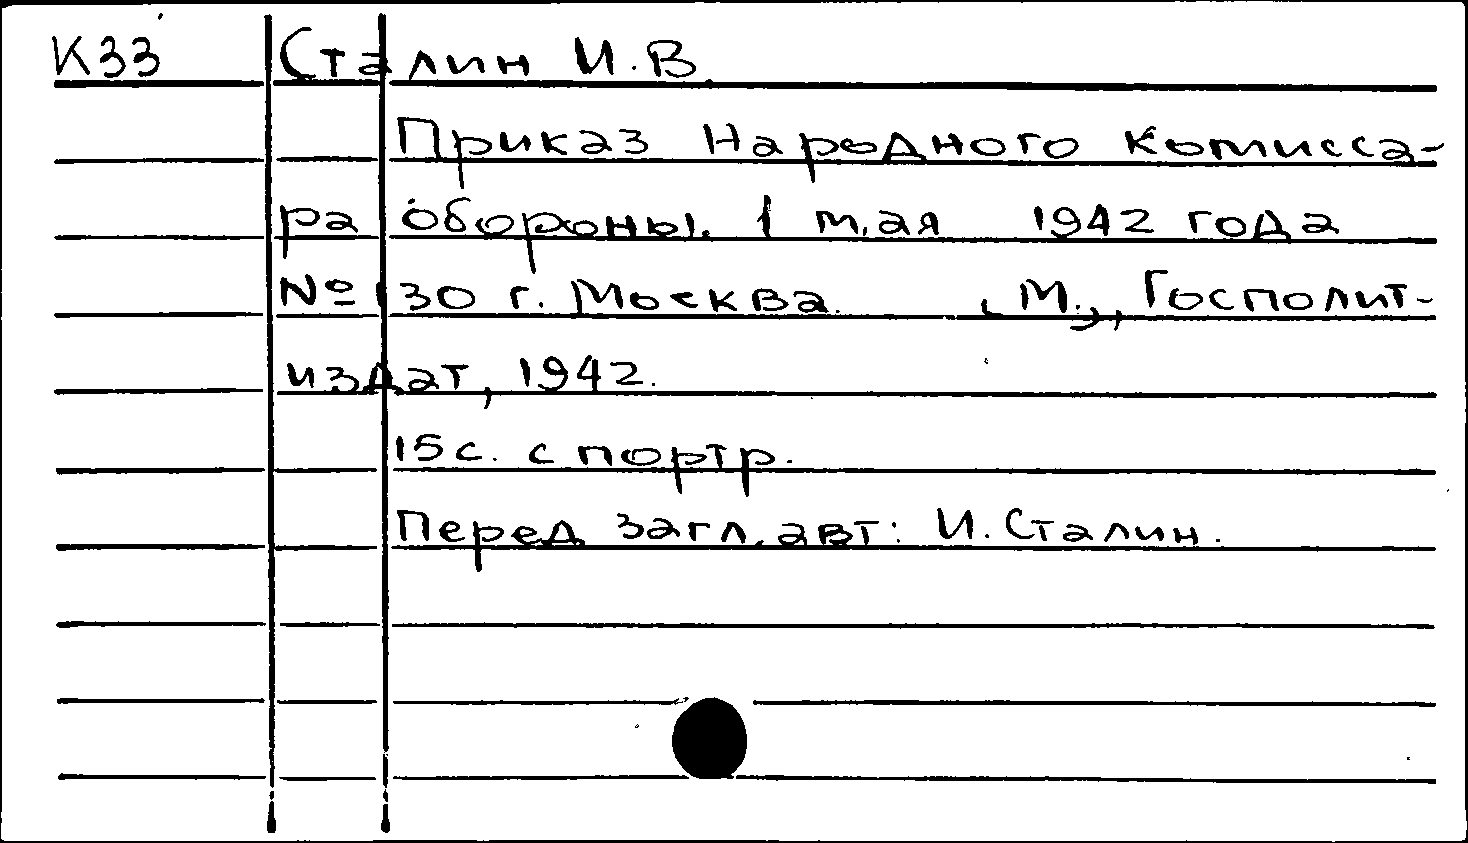 К33 Сталин И.В.
Приказ Народного Комисса-
ра обороны. 1 мая 1942 года
№130 г. Москва. М., Госполит-
издат, 1942.
15с. с портр.
Перед загл. авт: И. Сталин.